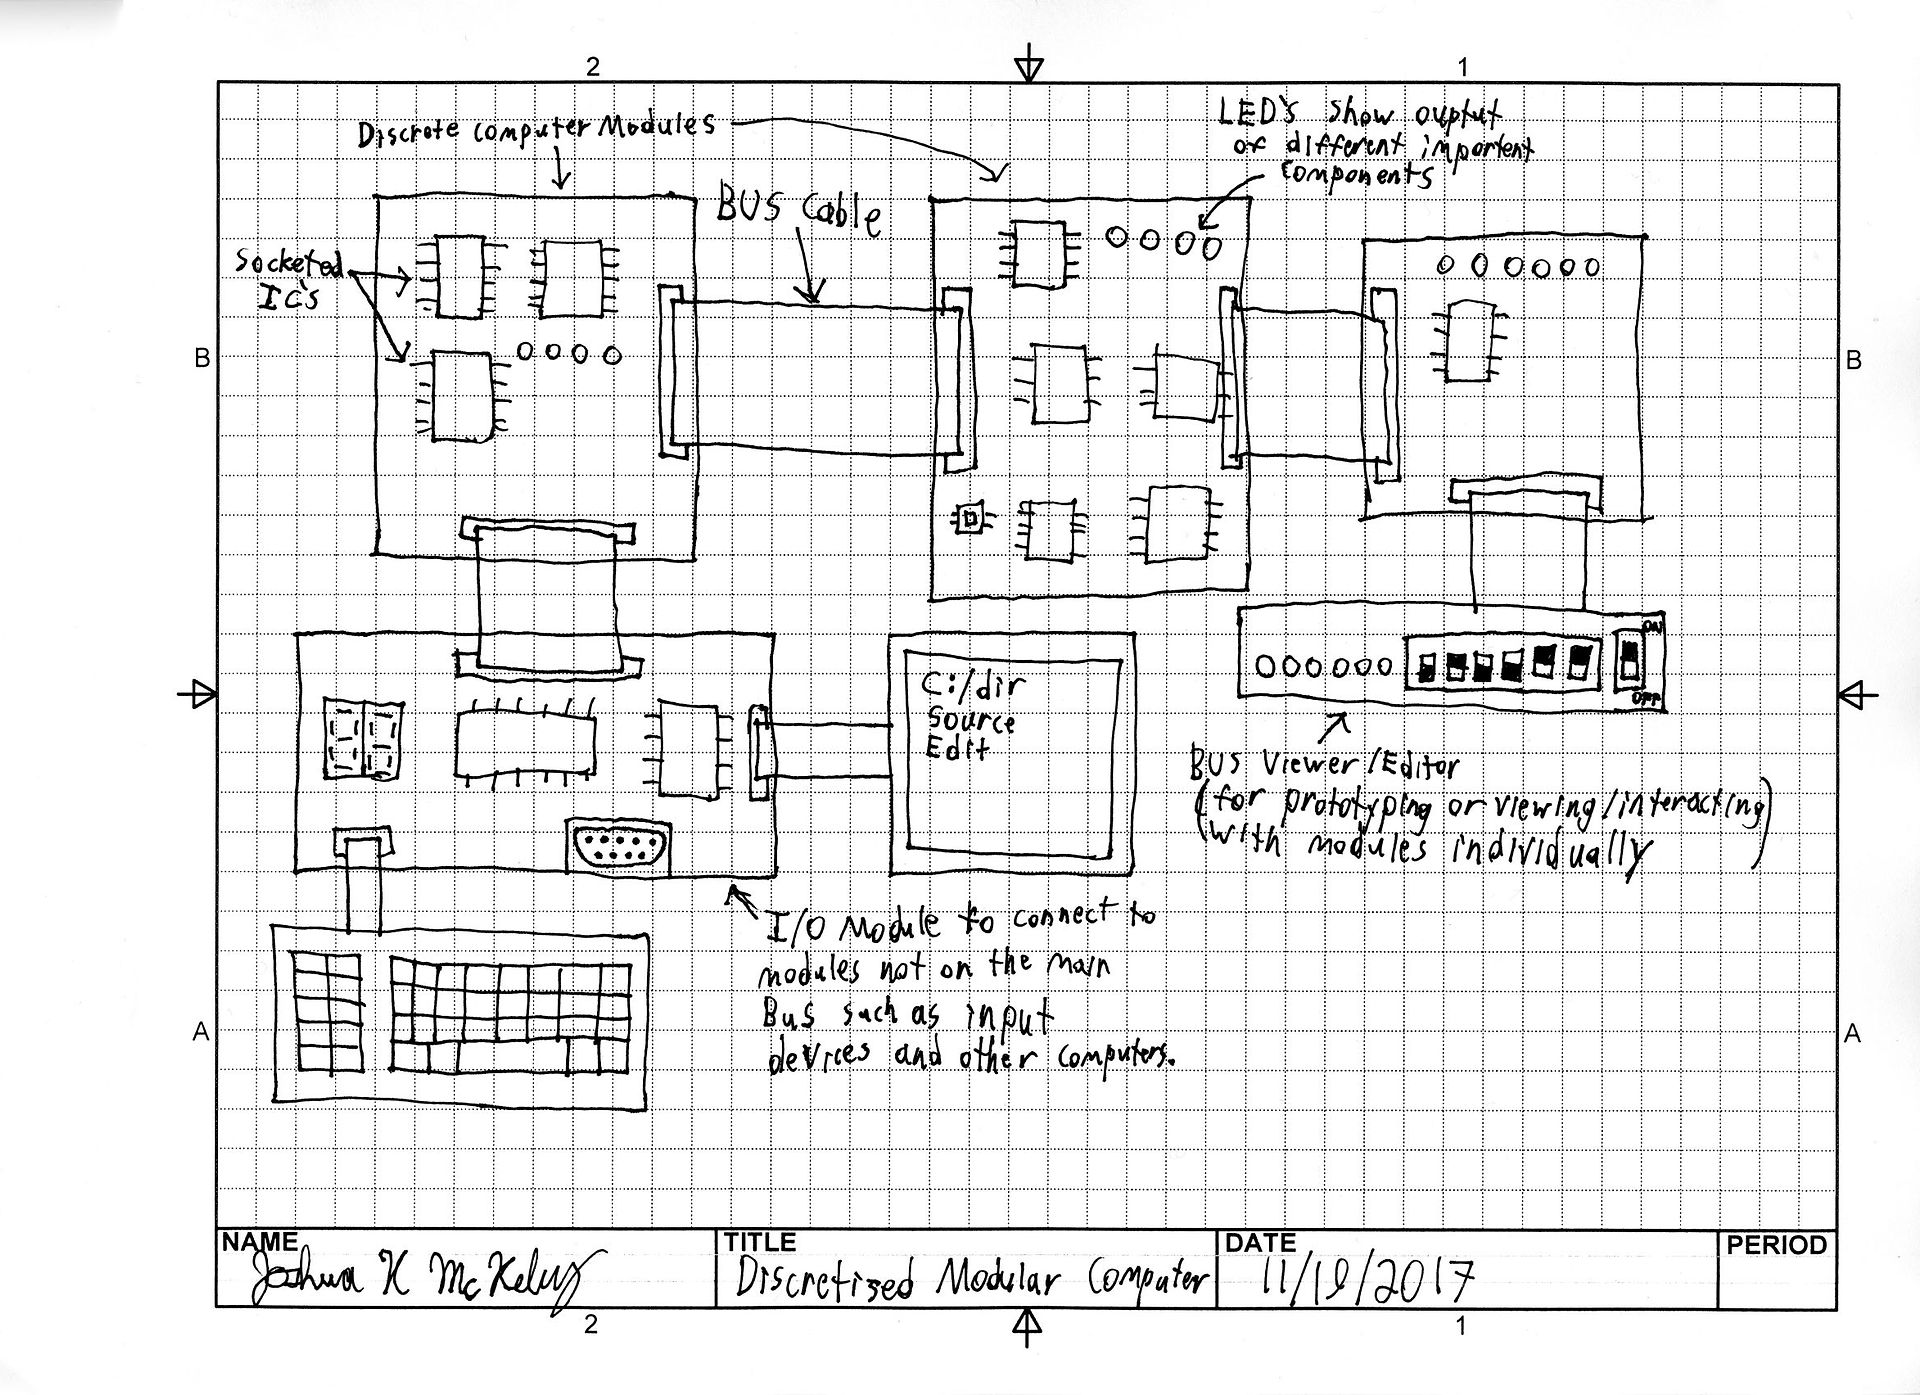 2
1
Discrete computer Modules
LED's show ouptut
of different important
components
BUS Cable
Socketed
IC's
B
B
C:/dir
Source
Edit
ON
OFF
BUS Viewer/Editor
(for prototyping or viewing/interacting)
with modules individually
I/O Module to connect to
modules not on the main
Bus such as input
devices and other computers.
A
A
NAME
Joshua K McKelvy
TITLE
Discretized Modular Computer
DATE
11/19/2017
PERIOD
2
1